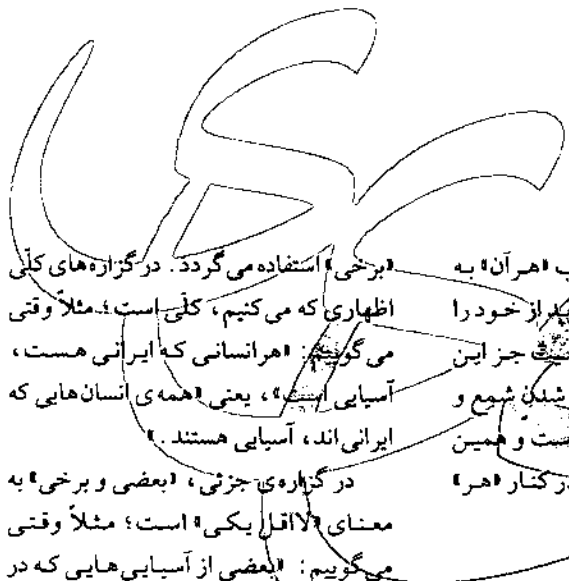 ب «هر آن» به
ید از خود را
جز این
شدن شمع و
ست و همین
در کنار «هر»
«برخی» استفاده می گردد. در گزاره های کلّی
اظهاری که می کنیم، کلّی است؛ مثلاً وقتی
می گوییم: «هرانسانی که ایرانی هست،
آسیایی است»، یعنی «همه ی انسان هایی که
ایرانی اند، آسیایی هستند.»
در گزاره ی جزئی، «بعضی و برخی» به
معنای «لااقل یکی» است؛ مثلاً وقتی
می گوییم: «بعضی از آسیایی هایی که در